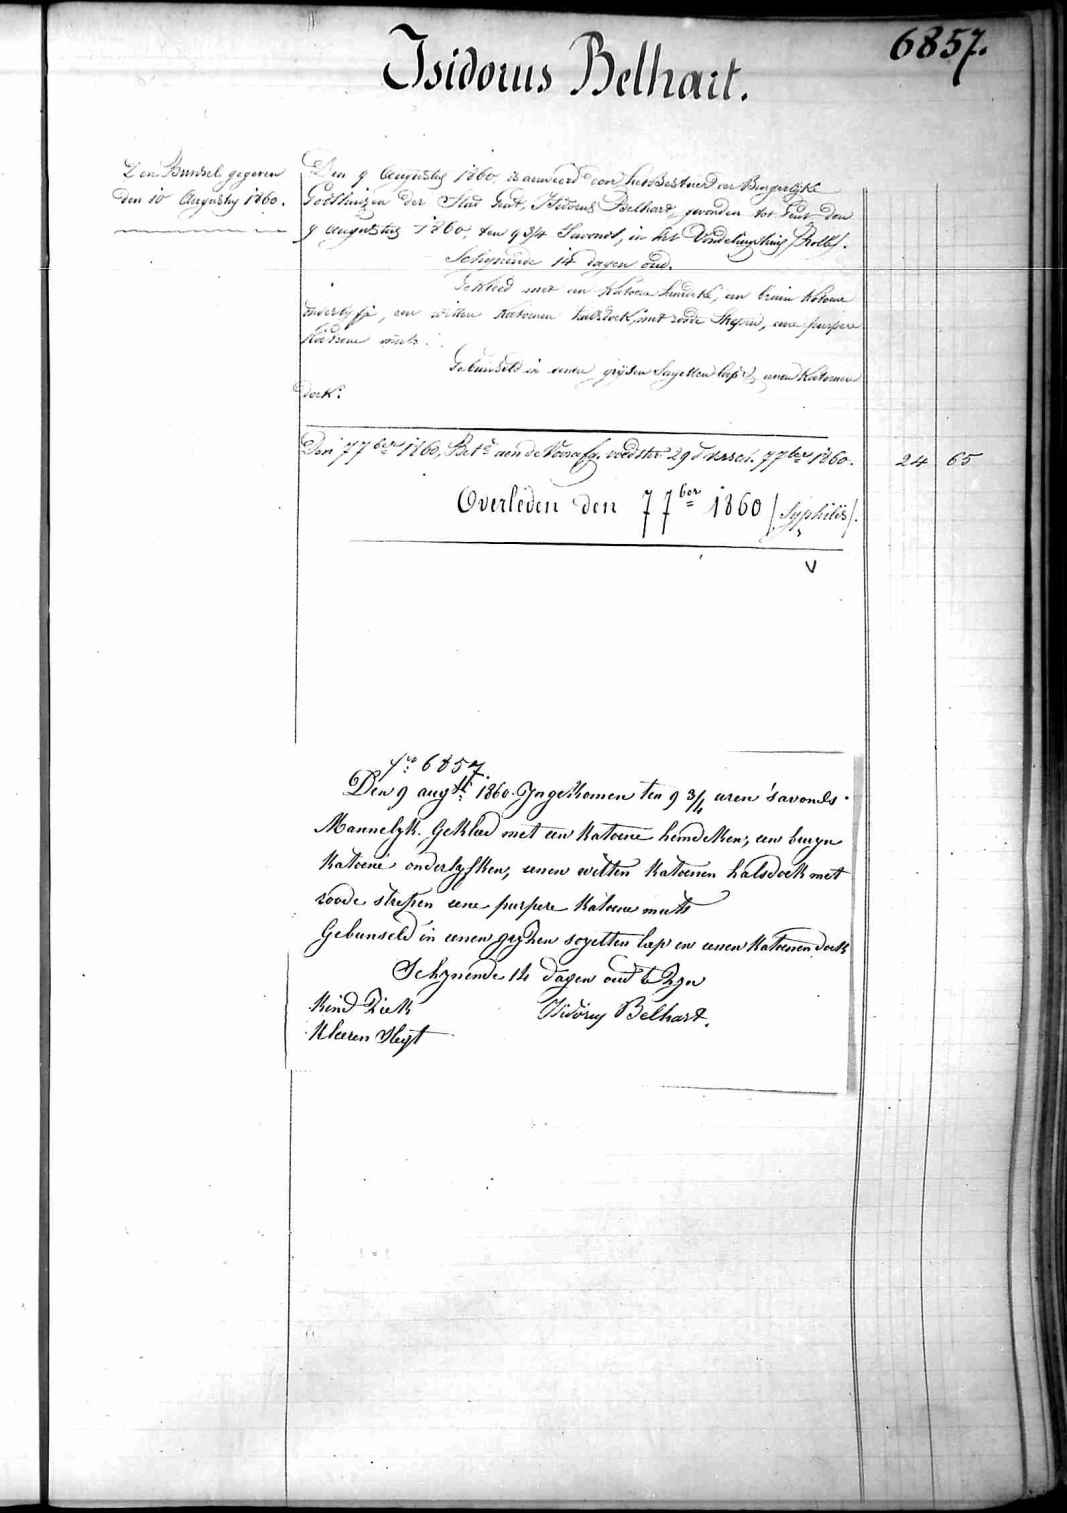 6857.
Isidorus Belhart.
Den Bunsel gegeven
den 10 Augusty 1860.
Den 9 Augusty 1860, is aenveerd door het Bestuer der Burgerlyke
Godshuizen der Stad Gent, Isidorus Belhart, gevonden tot Gent den
9 Augustus 1860, ten 9 3/4 Savonds, in het Vondelinghuis /Rolle/.
Schynende 14 dagen oud.
Gekleed met een katoene hemdeke, een bruin katoene
onderlyfje, eenen witten katoenen halsdoek, met roode strepen, eene purpere
katoene muts.
Gebunseld in eenen gryzen sayetten lap, eenen katoenen
doek.
Den 7 7ber 1860, Bet. aen de voedster 29 d. 7 7ber 1860. 24 65
Overleden den 7 7ber 1860 /Syphilis/.
V
No 6857.
Den 9 augst 1860. Ingekomen ten 9 3/4 uren 'savonds
Mannelyk. Gekleed met een katoene hemdeken, een bruyn
katoene onderlyfken, eenen witten katoenen halsdoek met
roode strepen eene purpere katoene muts
Gebunseld in eenen gryzen sayetten lap en eenen katoenen doek
Schynende 14 dagen oud te zyn
Kind Ziek Isidorus Belhart.
Kleeren Slegt